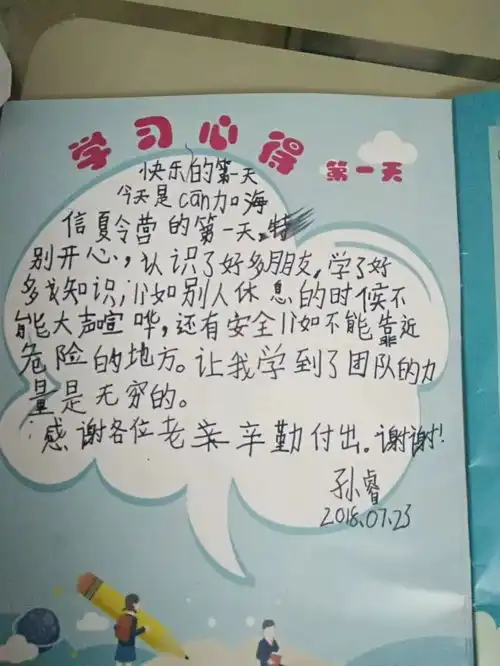 学习心得 第一天
快乐的第一天
今天是cān加海
信夏令营的第一天,特
别开心,认识了好多朋友,学了好
多知识,如别人休息的时候不
能大声喧哗,还有安全如不能靠近
危险的地方。让我学到了团队的力
量是无穷的。
感谢各位老亲辛勤付出。谢谢!
孙睿
2018.07.23